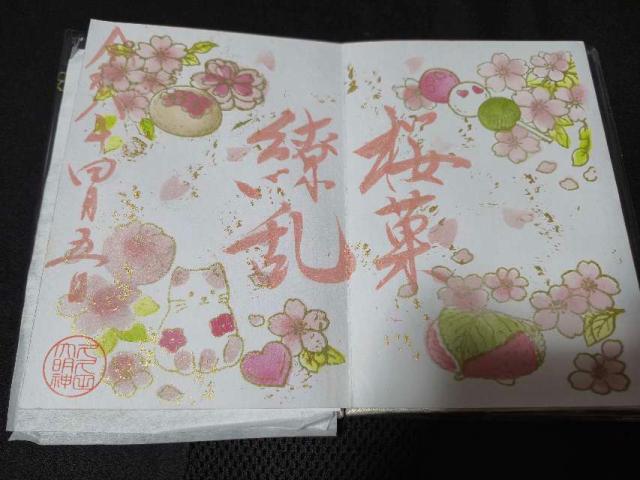 桜菓
繚乱
令和八年四月五日
大明神